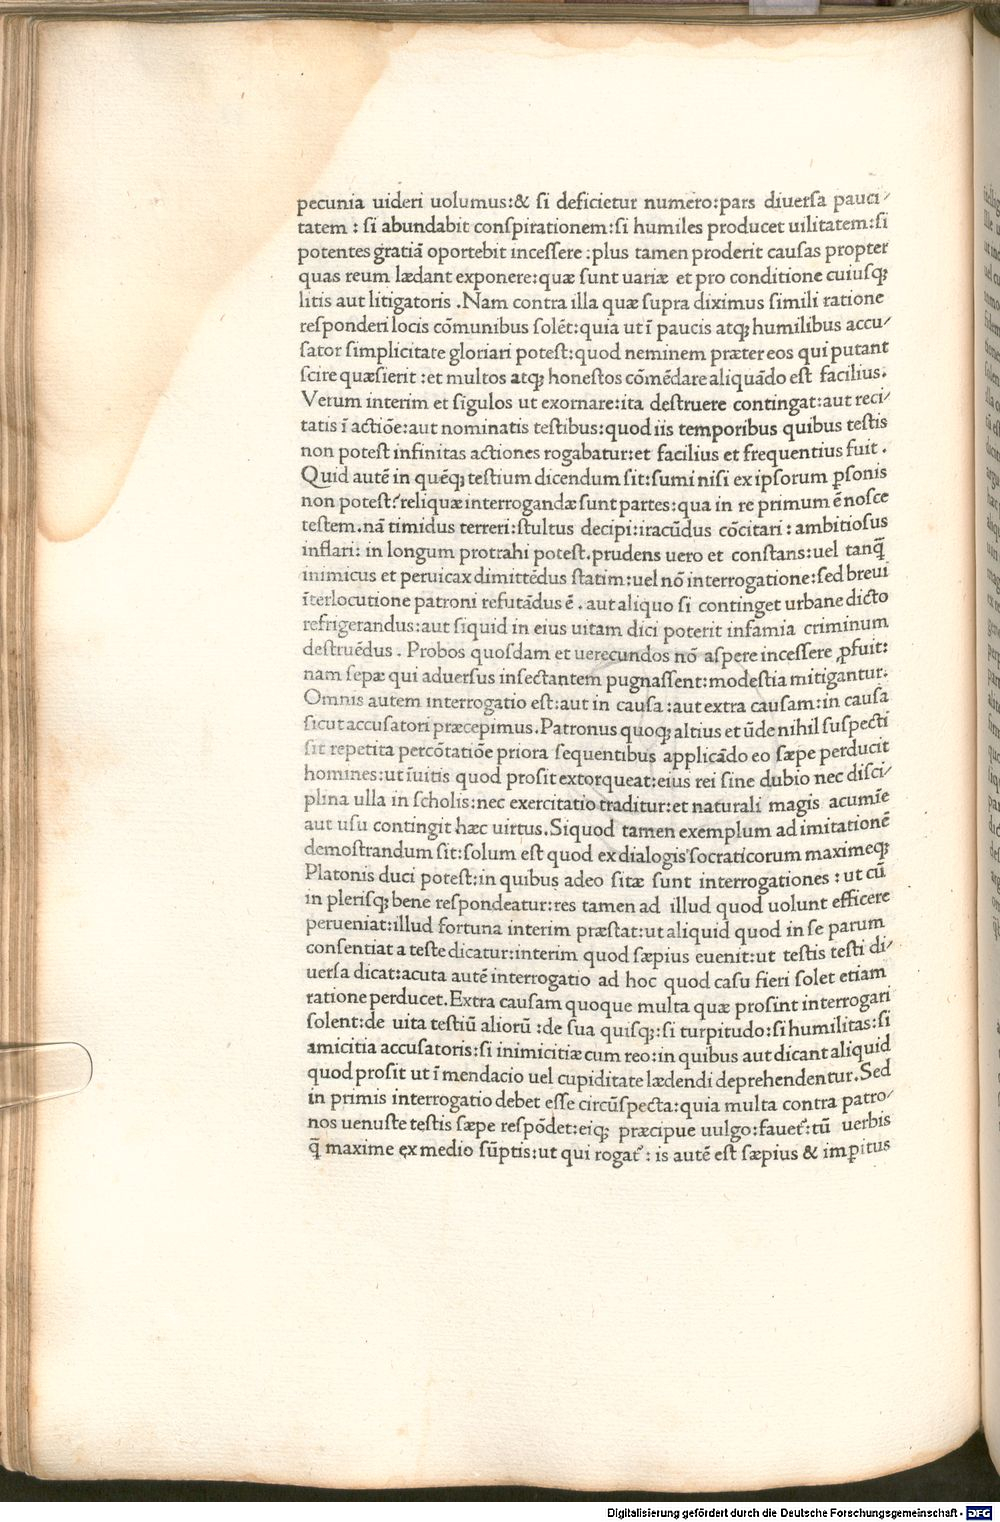 pecunia uideri uolumus:& ſi deficietur numero:pars diuerſa pauci⸗
tatem : ſi abundabit conſpirationem:ſi humiles producet uilitatem:ſi
potentes gratiā oportebit inceſſere :plus tamen proderit cauſas propter
quas reum lædant exponere:quæ ſunt uariæ et pro conditione cuiuſqꝫ
litis aut litigatoris .Nam contra illa quæ ſupra diximus ſimili ratione
reſponderi locis cōmunibus ſolēt:quia ut ī paucis atqꝫ humilibus accu⸗
ſator ſimplicitate gloriari poteſt:quod neminem præter eos qui putant
ſcire quæſierit :et multos atqꝫ honeſtos cōmēdare aliquādo eſt facilius.
Verum interim et ſīgulos ut exornare:ita deſtruere contingat:aut reci⸗
tatis ī actiōe:aut nominatis teſtibus:quod iis temporibus quibus teſtis
non poteſt infinitas actiones rogabatur:et facilius et frequentius fuit .
Quid autē in quēqꝫ teſtium dicendum ſit:ſumi niſi ex ipſorum ꝑſonis
non poteſt:reliquæ interrogandæ ſunt partes:qua in re primum ē noſce
teſtem.nā timidus terreri:ſtultus decipi:iracūdus cōcitari : ambitioſus
inflari: in longum protrahi poteſt.prudens uero et conſtans:uel tanq̄
inimicus et peruicax dimittēdus ſtatim:uel nō interrogatione:ſed breui
īterlocutione patroni refutādus ē . aut aliquo ſi continget urbane dicto
refrigerandus:aut ſiquid in eius uitam dici poterit infamia criminum
deſtruēdus . Probos quoſdam et uerecundos nō aſpere inceſſere ꝓfuit:
nam ſepæ qui aduerſus inſectantem pugnaſſent:modeſtia mitigantur.
Omnis autem interrogatio eſt:aut in cauſa :aut extra cauſam:in cauſa
ſicut accuſatori præcepimus.Patronus quoqꝫ altius et ūde nihil ſuſpecti
ſit repetita percōtatiōe priora ſequentibus applicādo eo ſæpe perducit
homines:ut īuitis quod proſit extorqueat:eius rei ſine dubio nec diſci⸗
plina ulla in ſcholis:nec exercitatio traditur:et naturali magis acumīe
aut uſu contingit hæc uirtus.Siquod tamen exemplum ad imitationē
demoſtrandum ſit:ſolum eſt quod ex dialogis ſocraticorum maximeqꝫ
Platonis duci poteſt:in quibus adeo ſitæ ſunt interrogationes : ut cū
in pleriſqꝫ bene reſpondeatur:res tamen ad illud quod uolunt efficere
perueniat:illud fortuna interim præſtat:ut aliquid quod in ſe parum
conſentiat a teſte dicatur:interim quod ſæpius euenit:ut teſtis teſti di⸗
uerſa dicat:acuta autē interrogatio ad hoc quod caſu fieri ſolet etiam
ratione perducet.Extra cauſam quoque multa quæ proſint interrogari
ſolent:de uita teſtiū aliorū :de ſua quiſqꝫ:ſi turpitudo:ſi humilitas:ſi
amicitia accuſatoris:ſi inimicitiæ cum reo:in quibus aut dicant aliquid
quod proſit ut ī mendacio uel cupiditate lædendi deprehendentur.Sed
in primis interrogatio debet eſſe circūſpecta:quia multa contra patro⸗
nos uenuſte teſtis ſæpe reſpōdet:eiqꝫ præcipue uulgo:fauet᷑:tū uerbis
q̄ maxime ex medio ſūptis:ut qui rogat᷑ : is autē eſt ſæpius & imꝑitus
Digitalisierung gefördert durch die Deutsche Forschungsgemeinschaft - DFG